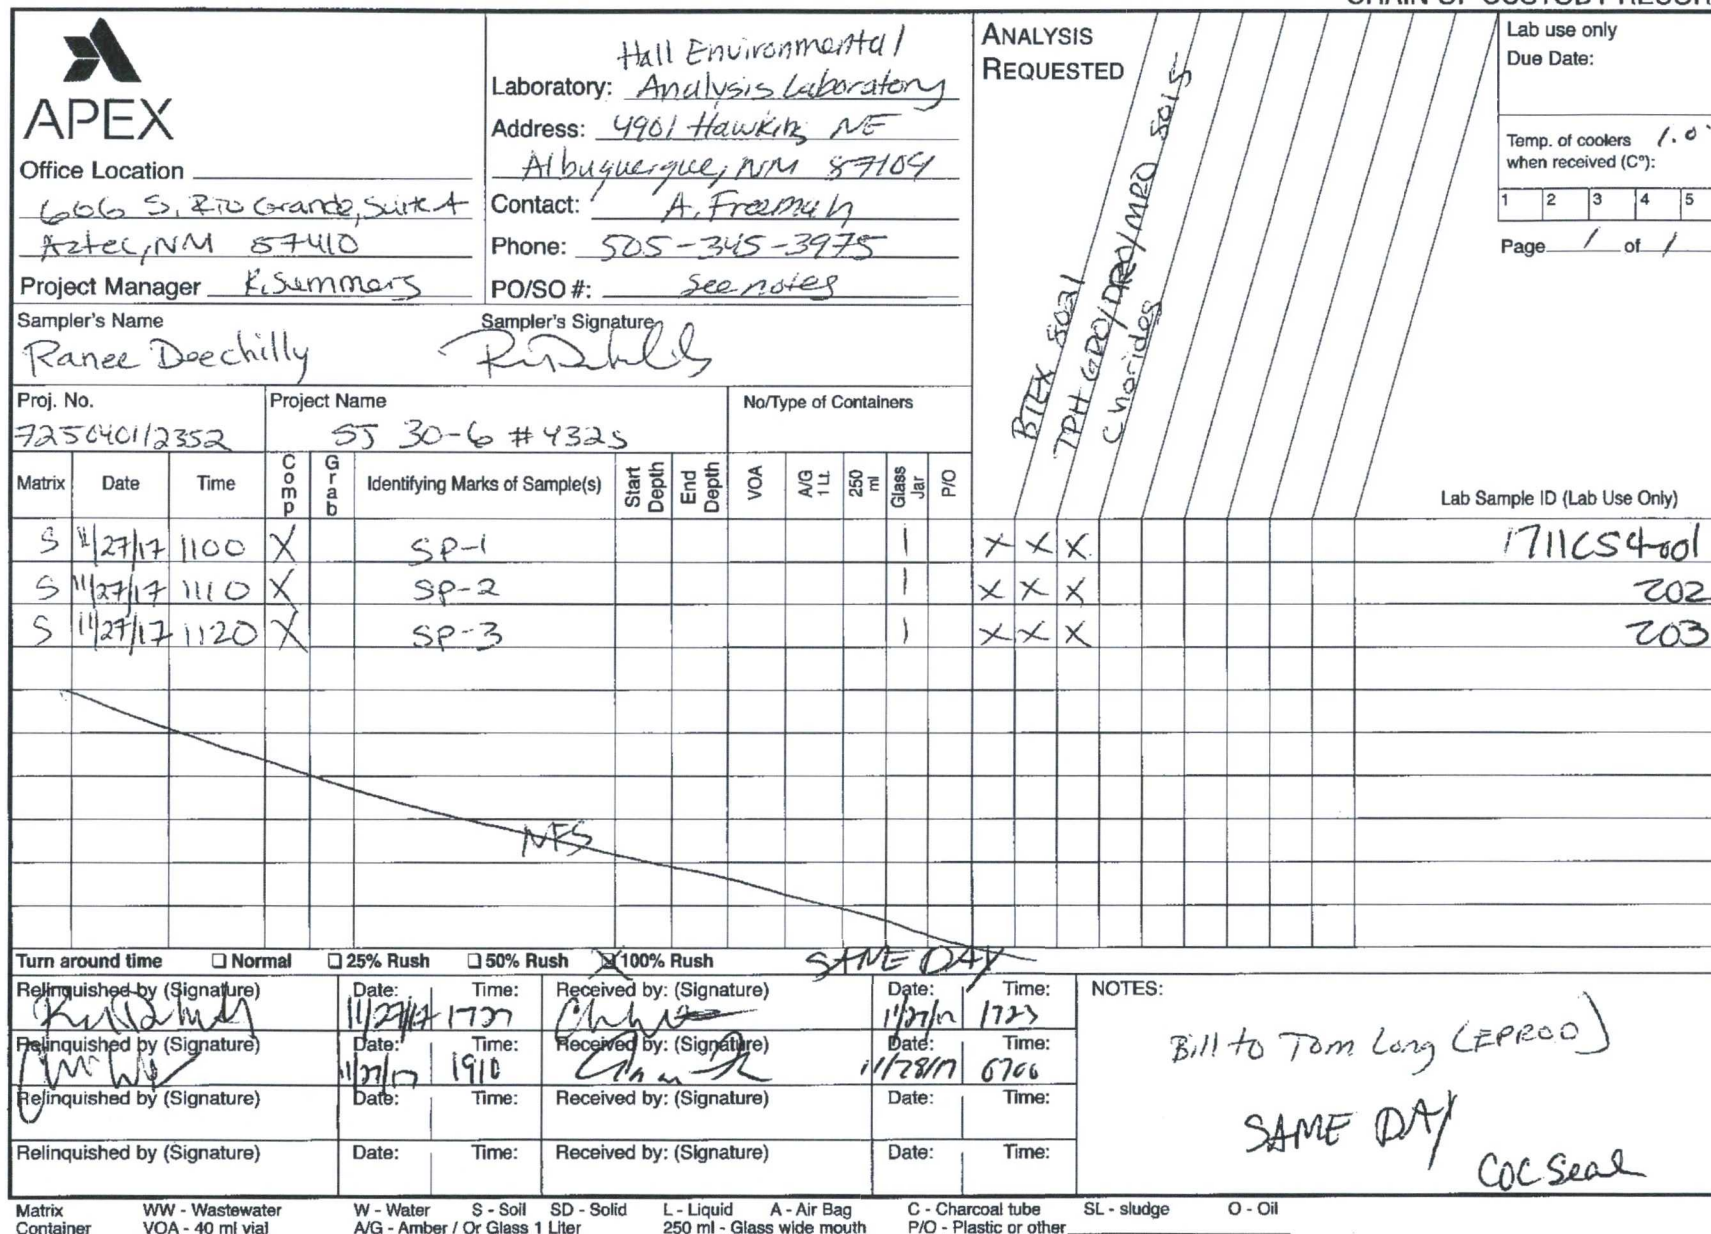 CHAIN OF CUSTODY RECOR
APEX
Office Location
606 S. Rio Grande, Suite A
Aztec, NM 87410
Project Manager K. Summers
Hall Environmental
Laboratory: Analysis Laboratory
Address: 4901 Hawkins NE
Albuquerque, NM 87109
Contact: A. Freeman
Phone: 505-345-3975
PO/SO #: See notes
ANALYSIS
REQUESTED
BTEX 8021
TPH GRO/DRO/MRO 8015
Chlorides
Lab use only
Due Date:
Temp. of coolers 1.0°
when received (C°):
1 2 3 4 5
Page 1 of 1
Sampler's Name
Ranee Deechilly
Sampler's Signature
Proj. No.
725040112352
Project Name
SJ 30-6 #432S
No/Type of Containers
Matrix Date Time Comp Grab Identifying Marks of Sample(s) Start Depth End Depth VOA A/G 1 Lt. 250 ml Glass Jar P/O
Lab Sample ID (Lab Use Only)
S 11/27/17 1100 X SP-1 1 X X X 1711C54-001
S 11/27/17 1110 X SP-2 1 X X X 202
S 11/27/17 1120 X SP-3 1 X X X 203
NFS
Turn around time Normal 25% Rush 50% Rush X 100% Rush SAME DAY
Relinquished by (Signature) Date: Time: Received by: (Signature) Date: Time:
11/27/17 1727 11/27/17 1723
Relinquished by (Signature) Date: Time: Received by: (Signature) Date: Time:
11/27/17 1910 11/28/17 0700
Relinquished by (Signature) Date: Time: Received by: (Signature) Date: Time:
Relinquished by (Signature) Date: Time: Received by: (Signature) Date: Time:
NOTES:
Bill to Tom Long (EPROD)
SAME DAY
COC Seal
Matrix WW - Wastewater W - Water S - Soil SD - Solid L - Liquid A - Air Bag C - Charcoal tube SL - sludge O - Oil
Container VOA - 40 ml vial A/G - Amber / Or Glass 1 Liter 250 ml - Glass wide mouth P/O - Plastic or other